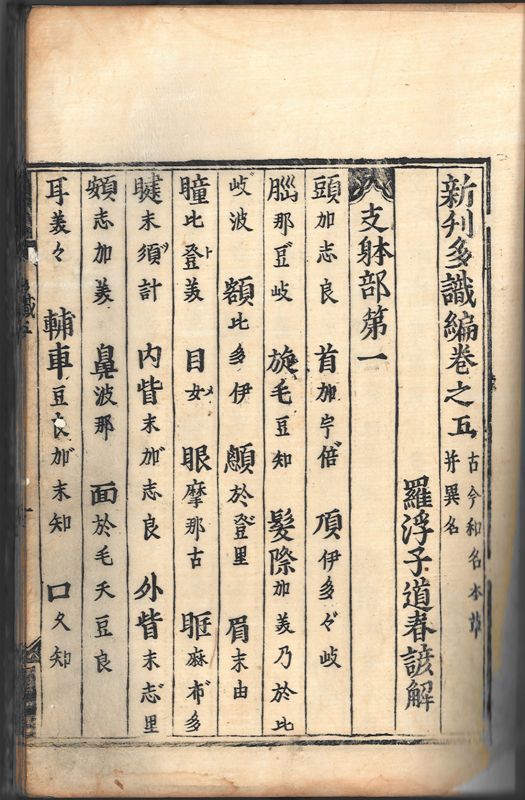 新刊多識編巻之五 古今和名本草
并異名
羅浮子道春諺解
支躰部第一
頭加志良 首加宇倍 項伊多々岐
腦那豆岐 旋毛豆知 髮際加美乃於比
岐波 額比多伊 顱於登里 眉末由
瞳比登ト美 目女メ 眼摩那古 眶麻布多
睫末須ツ計 内眥末加志良 外眥末志里
頰志加美 鼻波那 面於毛天豆良
耳美々 輔車豆良加末知 口久知